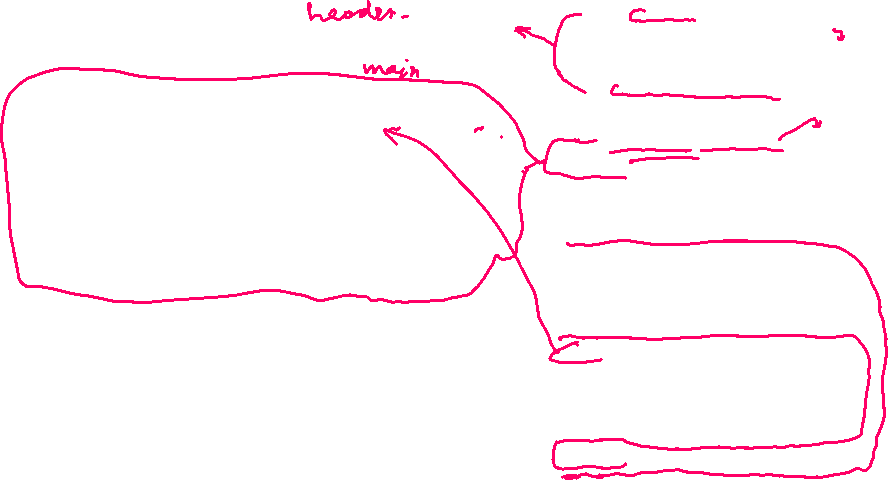 header.
main